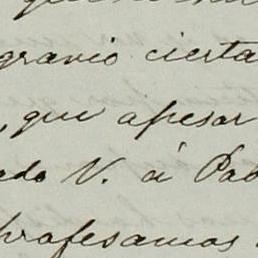 gravio cierta
, que apesar
ado V. á Pab
profesamos